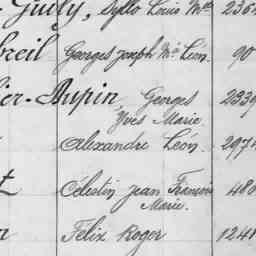 Gully, Sylto Louis Mie 2364
breil Georges Joseph Mie Léon. 90
ier-Dupin, Georges 2339
Yves Marie
Alexandre Léon. 297
t Célestin Jean François 480
Marie.
Félix Roger 1241